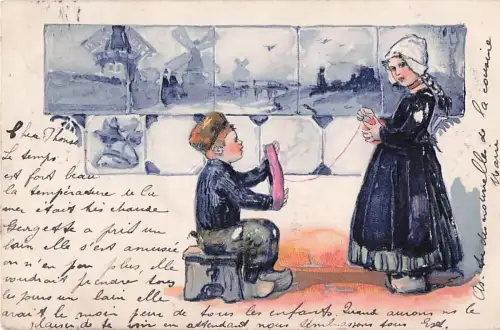 Chère Thérèse
Le temps
est fort beau
la température de la
mer était très chaude
Georgette a pris un
bain elle s'est amusée
on n'en peu plus, elle
voudrait prendre tous
les jours un bain elle
avait le moins peur de tous les enfants. Quand aurons ns le
plaisir de te voir en attendant nous t'embrassons tous
des nouvelles de la cousine